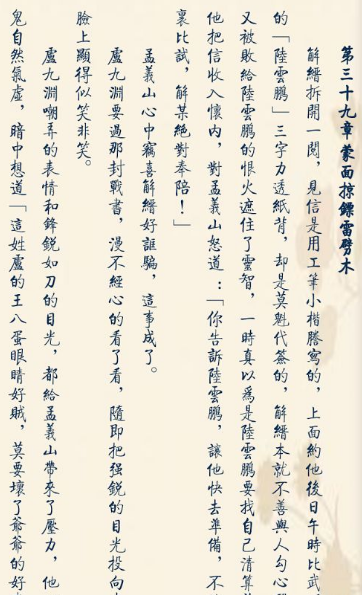 第三十九章 蒙面掠鏢雷劈木
解縉拆開一閱，見信是用工筆小楷謄寫的，上面約他後日午時比武，
的「陸雲鵬」三字力透紙背，却是莫魁代簽的，解縉本就不善與人勾心
又被敗給陸雲鵬的恨火遮住了靈智，一時真以爲是陸雲鵬要找自己清算
他把信收入懷内，對孟義山怒道：「你告訴陸雲鵬，讓他快去準備，不
裏比試，解某絕對奉陪！」
孟義山心中竊喜解縉好誆騙，這事成了。
盧九淵要過那封戰書，漫不經心的看了看，隨即把强鋭的目光投向
臉上顯得似笑非笑。
盧九淵嘲弄的表情和鋒鋭如刀的目光，都給孟義山帶來了壓力，他
鬼自然氣虛，暗中想道「這姓盧的王八蛋眼睛好賊，莫要壞了爺爺的好